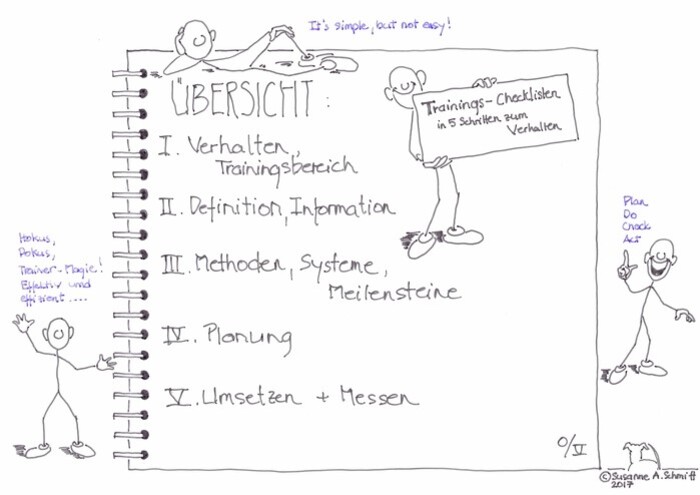 It's simple, but not easy!
ÜBERSICHT:
Trainings-Checklisten
in 5 Schritten zum
Verhalten
I. Verhalten,
Trainingsbereich
II. Definition, Information
III. Methoden, Systeme,
Meilensteine
IV. Planung
V. Umsetzen + Messen
0/V
Hokus,
Pokus,
Trainer-Magie!
Effektiv und
effizient....
Plan
Do
Check
Act
©Susanne A. Schmitt
2017